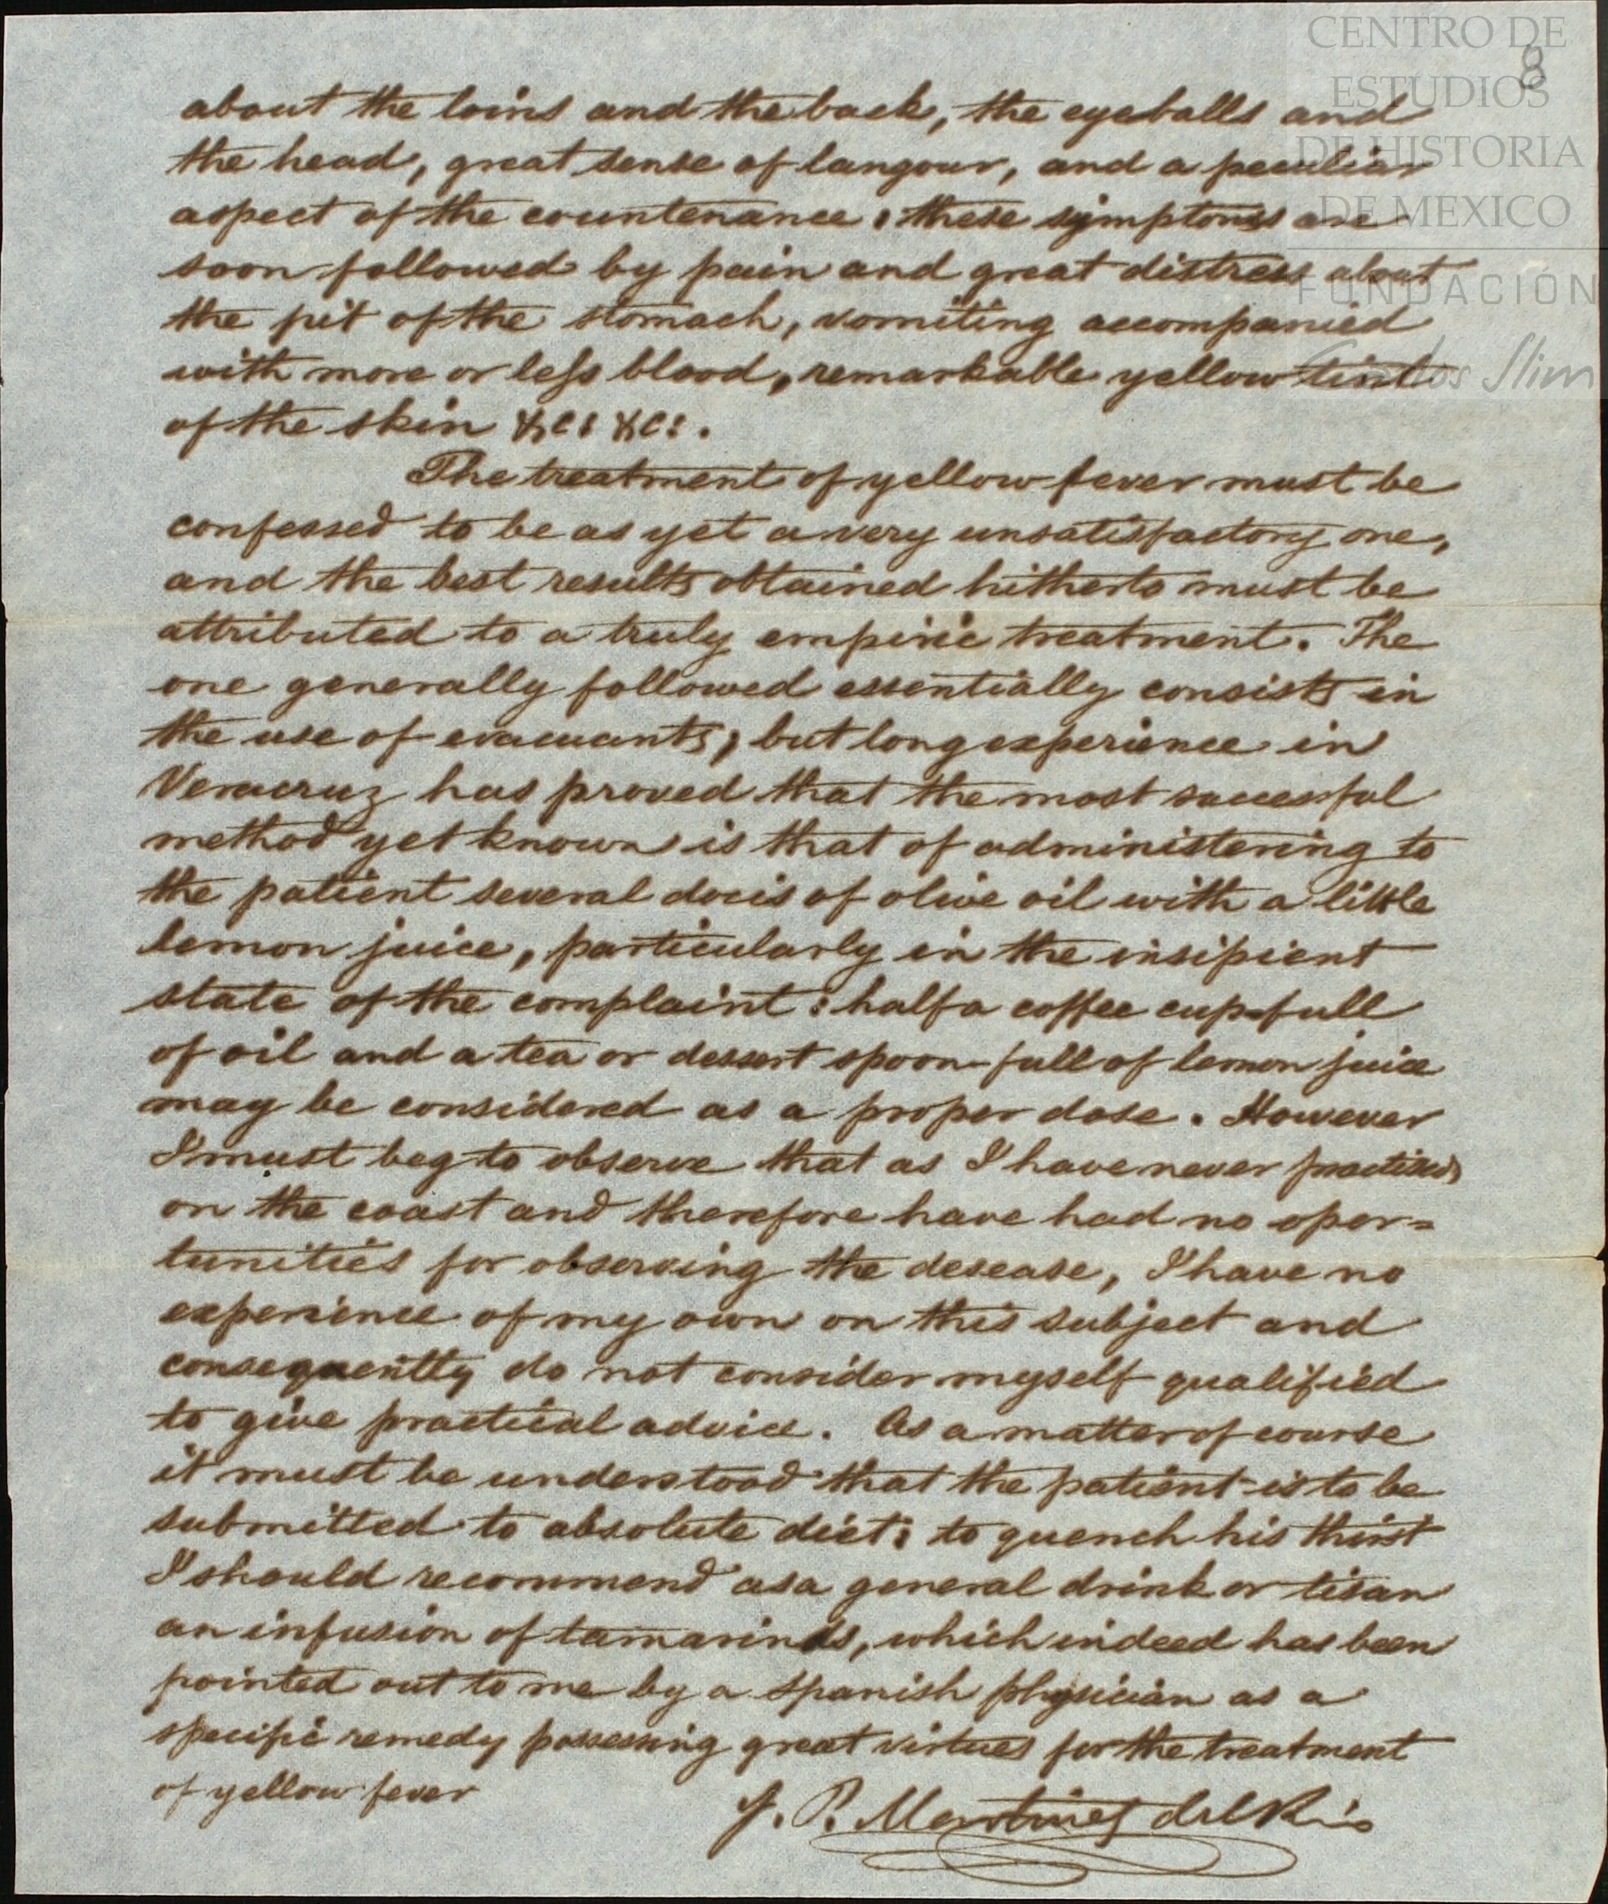 CENTRO DE
ESTUDIOS
DE HISTORIA
DE MEXICO
FUNDACIÓN
Carlos Slim
8
about the loins and the back, the eyeballs and
the head, great sense of langour, and a peculiar
aspect of the countenance; these symptoms are
soon followed by pain and great distress about
the pit of the stomach, vomiting accompanied
with more or less blood, remarkable yellow tint
of the skin &c: &c: .
The treatment of yellow fever must be
confessed to be as yet a very unsatisfactory one,
and the best results obtained hitherto must be
attributed to a truly empiric treatment. The
one generally followed essentially consists in
the use of evacuants; but long experience in
Veracruz has proved that the most succesful
method yet known is that of administering to
the patient several docis of olive oil with a little
lemon juice, particularly in the insipient
state of the complaint: half a coffee cup-full
of oil and a tea or dessert spoon-full of lemon juice
may be considered as a proper dose. However
I must beg to observe that as I have never practised
on the coast and therefore have had no opor=
tunities for observing the desease, I have no
experience of my own on this subject and
consequently do not consider myself qualified
to give practical advice. As a matter of course
it must be understood that the patient is to be
submitted to absolute diet: to quench his thirst
I should recommend as a general drink or tisan
an infusion of tamarinds, which indeed has been
pointed out to me by a Spanish physician as a
specific remedy possessing great virtues for the treatment
of yellow fever
J. P. Martinez del Rio